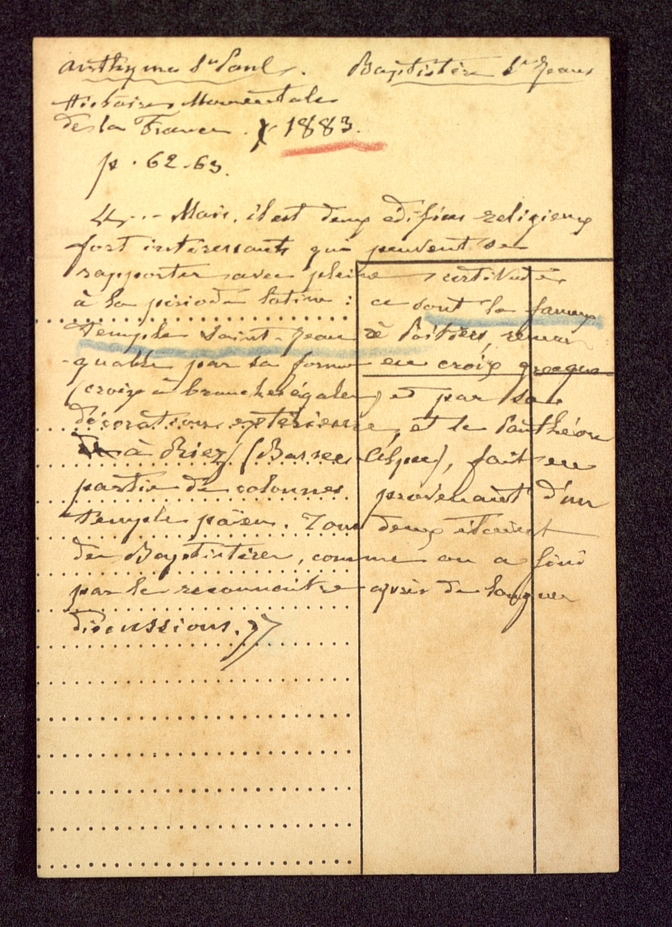 Anthyme St Paul. Baptistère St Jean
Histoire Monumentale
de la France. 1883.
p. 62-63.
"... Mais, il est deux édifices religieux
fort intéressants qui peuvent se
rapporter avec pleine certitude
à la période latine : ce sont le fameux
Temple Saint-Jean de Poitiers, remar-
quable par sa forme en croix grecque
(croix à branches égales) et par sa
décoration extérieure, et le Panthéon
à Riez (Basses Alpes), fait en
partie de colonnes provenant d'un
temple païen. Tous deux étaient
des Baptistères, comme on a fini
par le reconnaître après de longues
discussions."